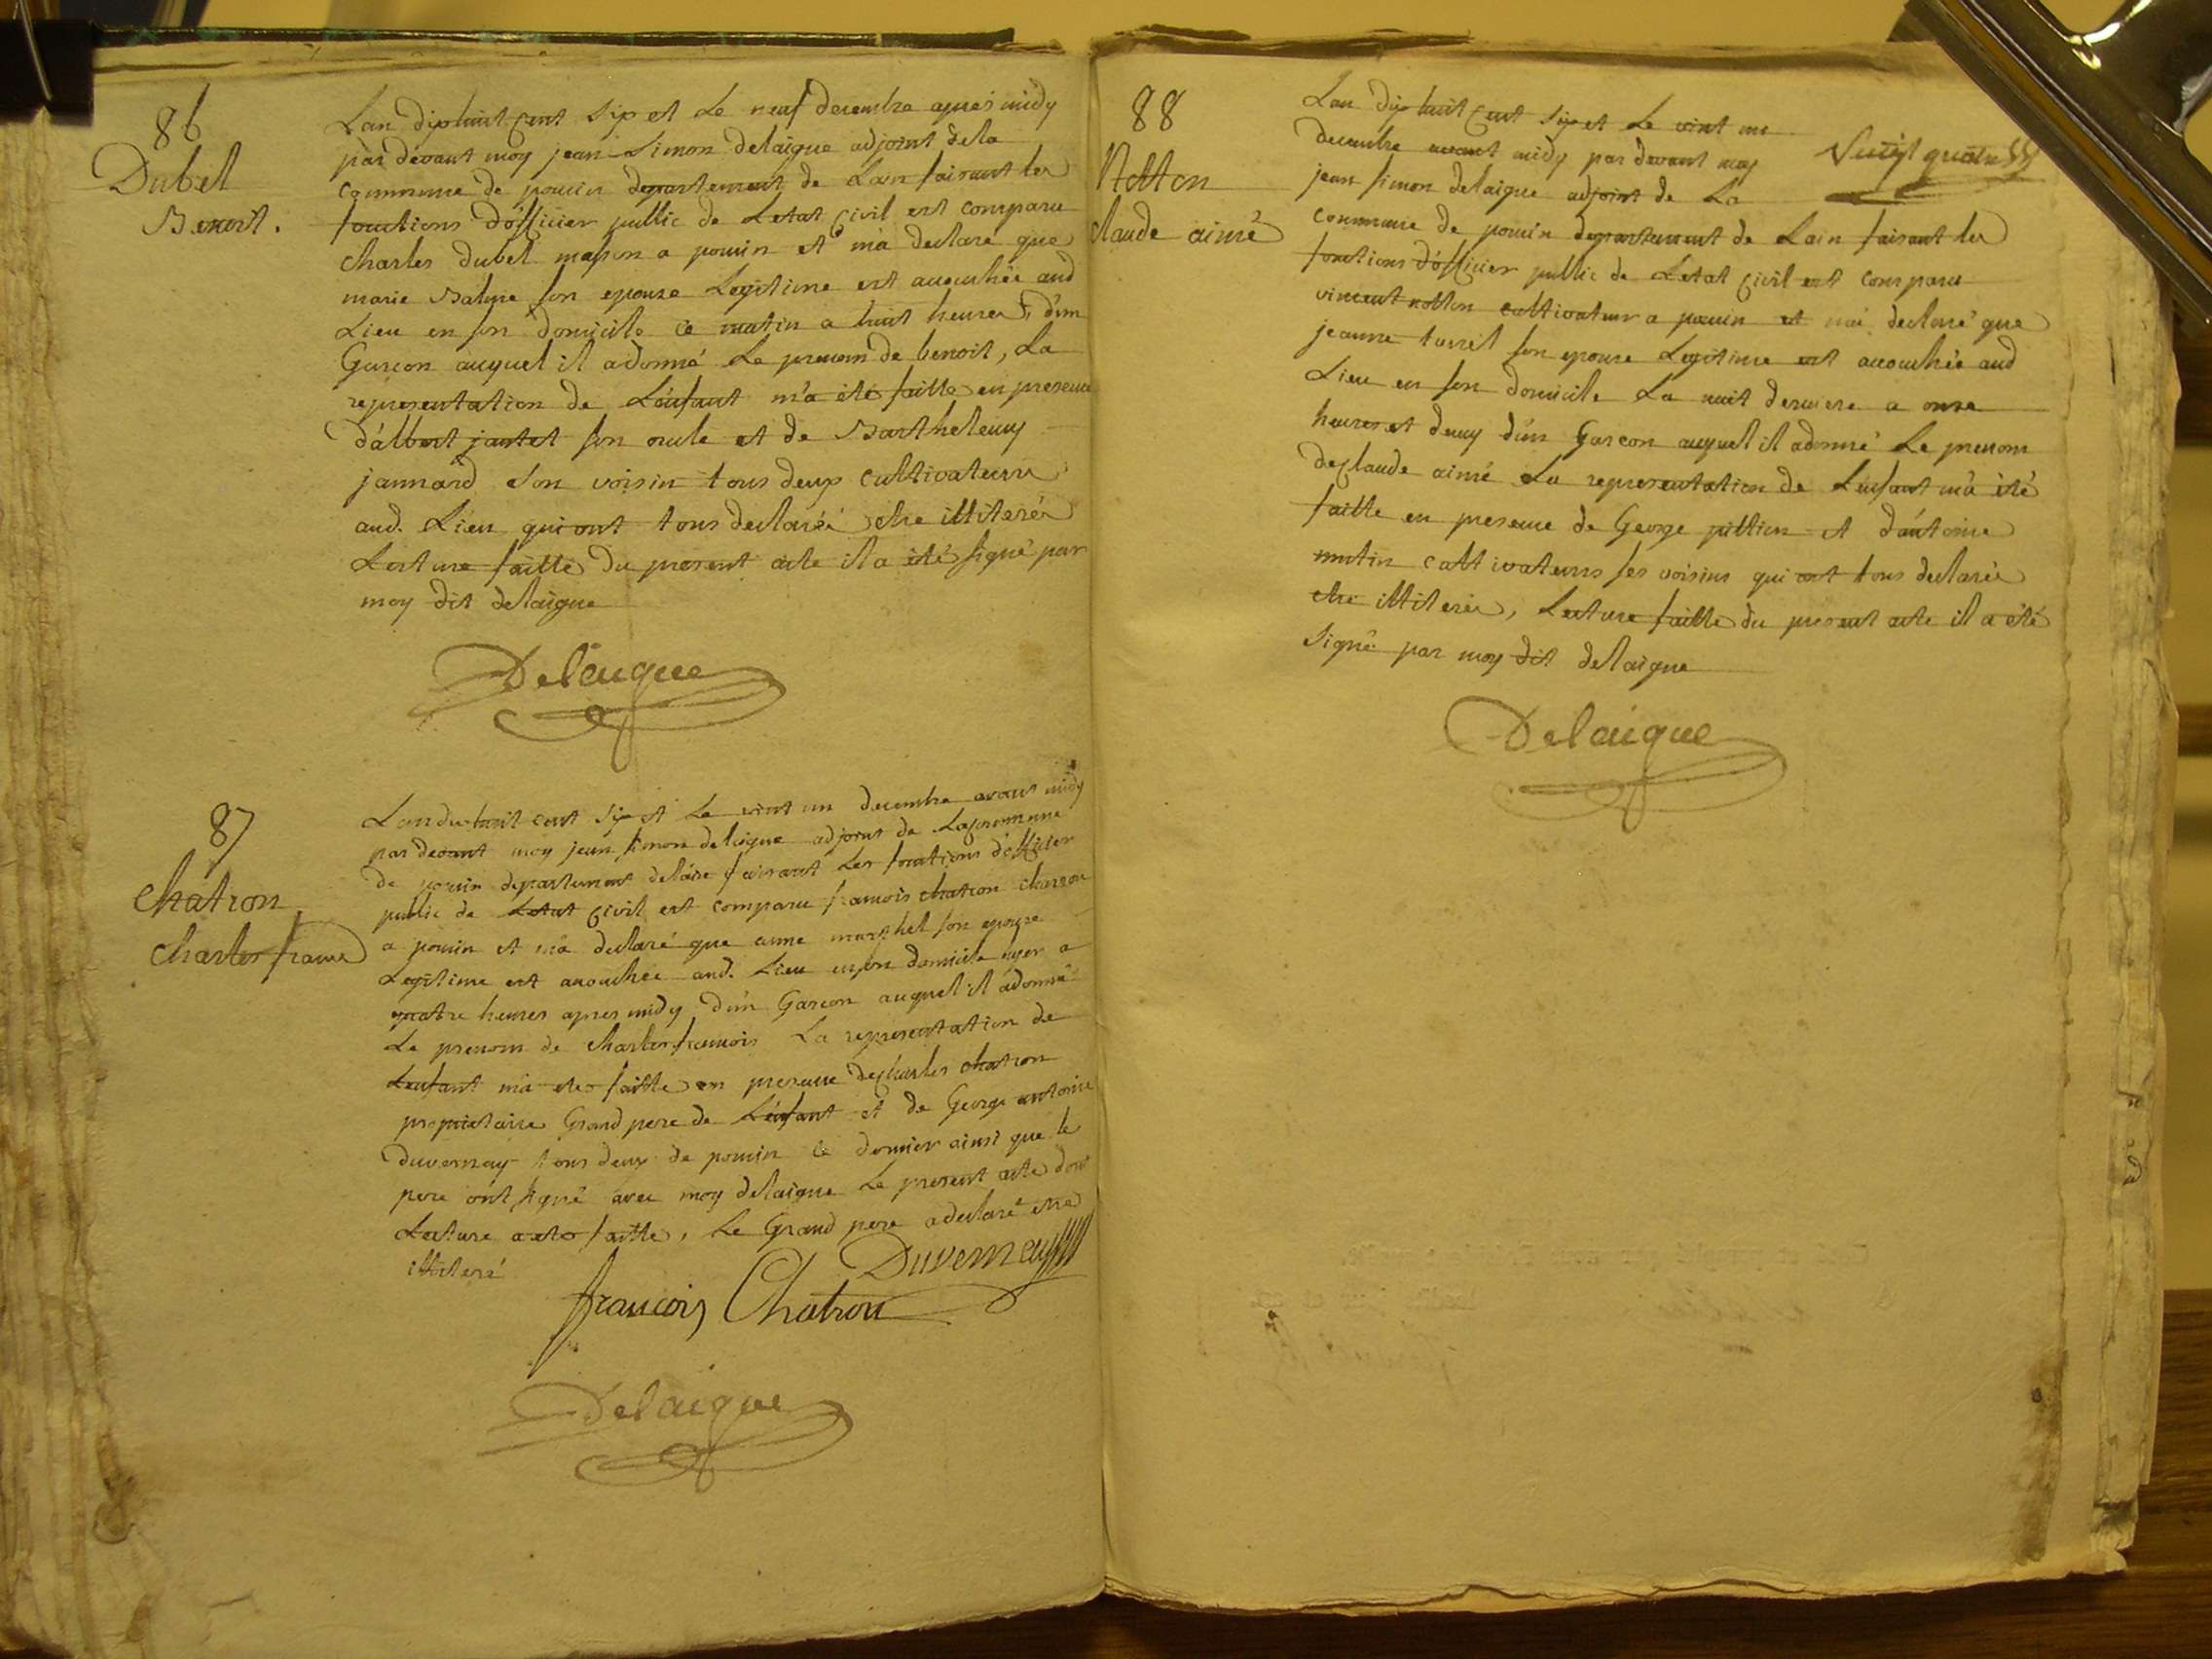 86
Dubel
Benoit.
Lan dix huit cent six et Le neuf decembre apres midy
par devant moy jean Simon delaigue adjoint de la
commune de pouin departement de Lain faisant les
fonctions d'officier public de Letat civil est comparu
charles dubel masson a pouin et m'a declaré que
marie Balme son epouse Legitime est accouchée aud
Lieu en son domicile ce matin a huit heures, d'un
Garcon auquel il a donné Le prenom de benoit, La
representation de L'enfant m'a été faitte en presence
d'albert jantet son oncle et de Barthelemy
jannard son voisin tous deux cultivateurs
aud. Lieu qui ont tous declarés etre illiterés
Lecture faitte du present acte il a été signé par
moy dit delaigue
Delaigue
87
Chatron
Charles francois
Lan dix huit cent six et Le vint un decembre avant midy
par devant moy jean simon delaigue adjoint de La commune
de pouin departement de lain faisant Les fonctions d'officier
public de Letat civil est comparu francois chatron charron
a pouin et m'a declaré que anne marchel son epouse
Legitime est accouchée aud. Lieu en son domicile hyer a
quatre heures apres midy, d'un Garcon auquel il a donné
Le prenom de charles francois La representation de
Lenfant m'a eté faitte en presence de charles chatron
proprietaire Grand pere de L'enfant et de George antoine
Duvernay tous deux de pouin ce dernier ainsi que le
pere ont signé avec moy delaigue Le present acte dont
Lecture a eté faitte, Le Grand pere a declaré etre
illiteré
Duvernay
francois Chatron
Delaigue
88
Notton
claude aimé
Vuingt quatre
Lan dix huit cent six et Le vint un
decembre avant midy par devant moy
jean simon delaigue adjoint de La
commune de pouin departement de Lain faisant les
fonctions d'officier public de Letat civil est comparu
vincent notton cultivateur a pouin et m'a declaré que
jeanne son epouse Legitime est accouchée aud
Lieu en son domicile La nuit derniere a onze
heures et demy d'un Garcon auquel il a donné Le prenom
de claude aimé La representation de Lenfant m'a été
faitte en presence de George et d'antoine
mutin cultivateurs ses voisins qui ont tous declarés
etre illiterés, Lecture faitte du present acte il a été
signé par moy dit delaigue
Delaigue